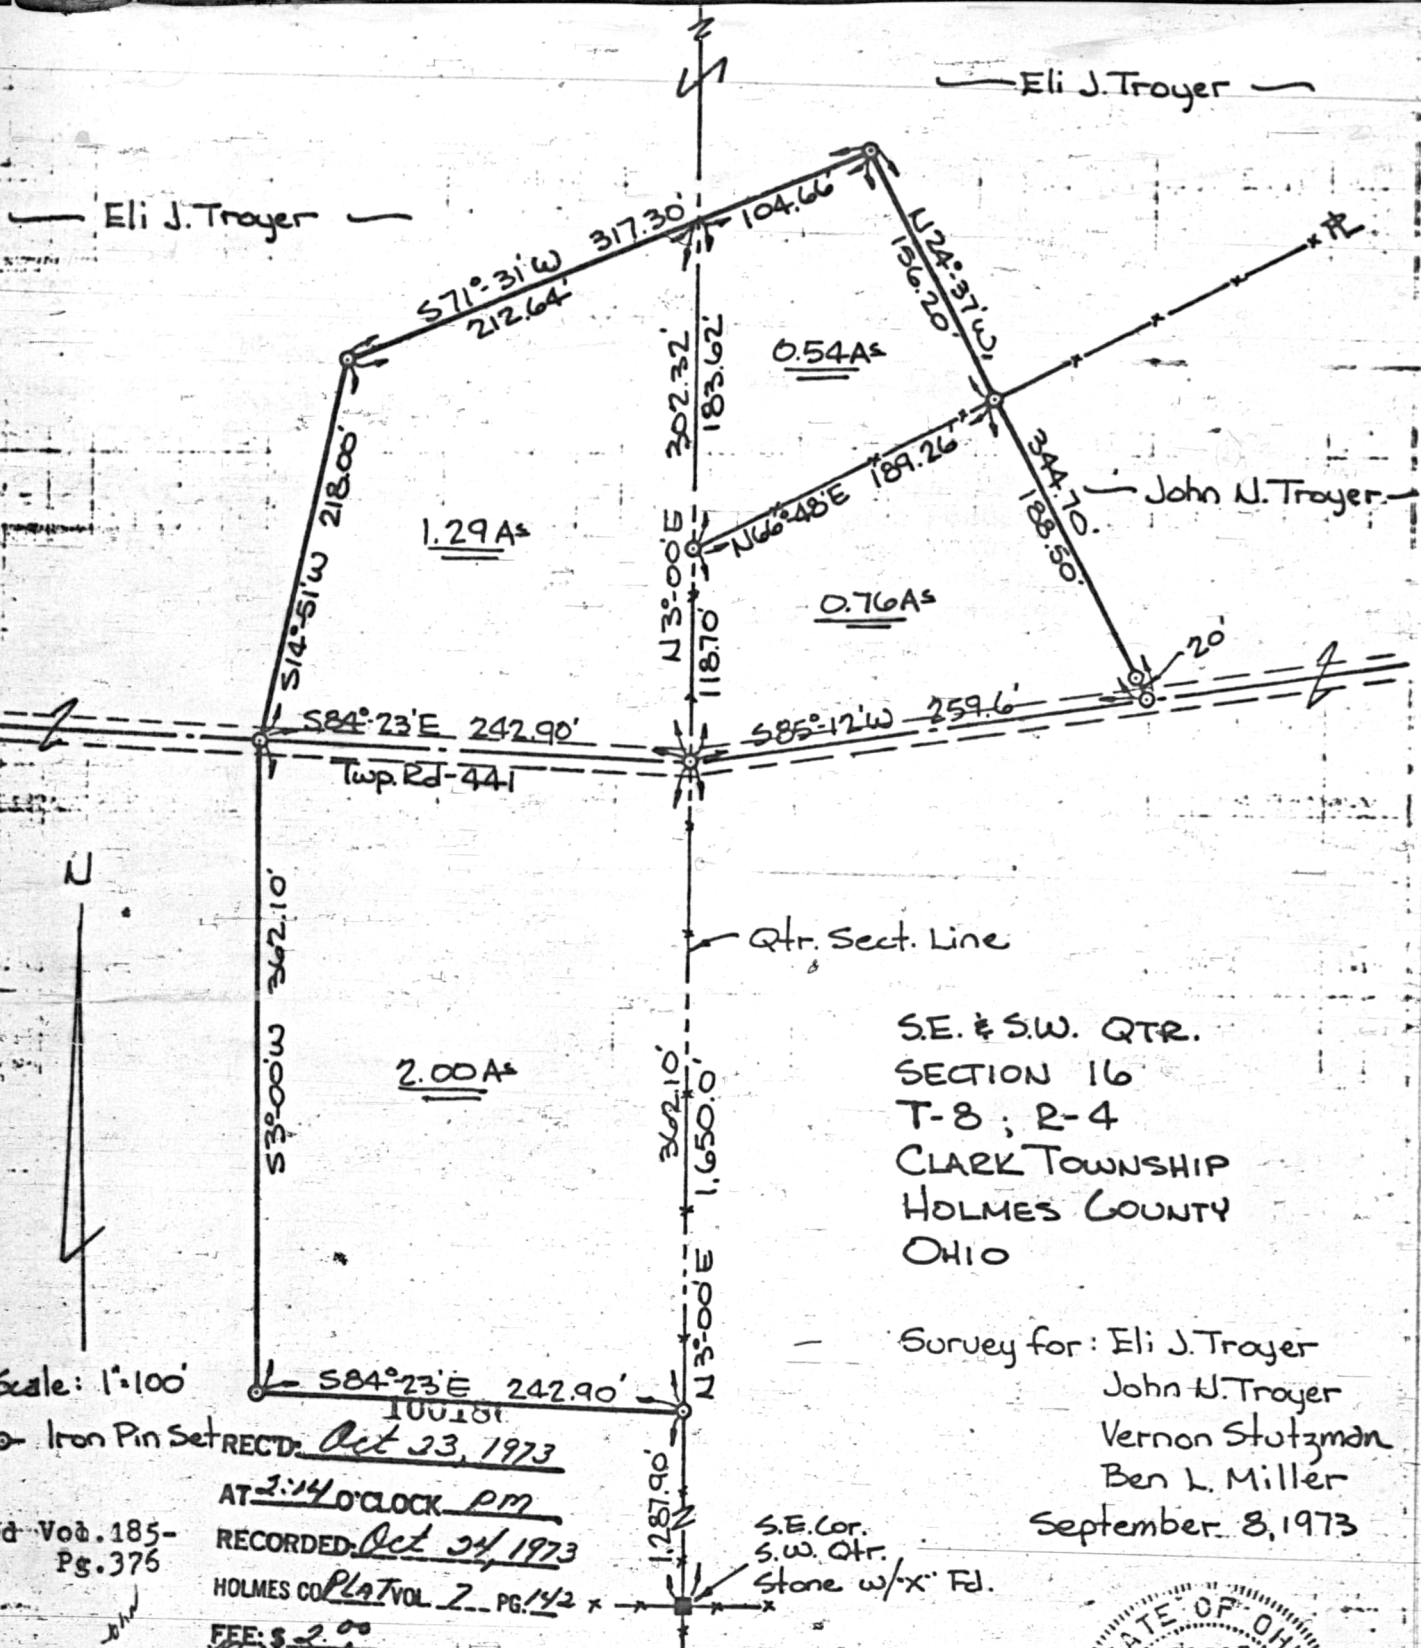 Eli J. Troyer
Eli J. Troyer
S71°-31'W 317.30'
212.64'
104.66'
N24°-37'W
156.20'
302.32'
183.62'
0.54As
S14°-51'W 218.00'
1.29As
N66°-48'E 189.26'
344.70'
188.50'
John N. Troyer
N3°-00'E
118.70'
0.76As
20'
S84°-23'E 242.90'
Twp. Rd-441
S85°-12'W 259.6'
N
S3°-00'W 362.10'
Qtr. Sect. Line
2.00As
362.10'
N3°-00'E 1,650.0'
S.E. & S.W. QTR.
SECTION 16
T-8 ; R-4
CLARK TOWNSHIP
HOLMES COUNTY
OHIO
Survey for: Eli J. Troyer
John N. Troyer
Vernon Stutzman
Ben L. Miller
September 8, 1973
Scale: 1"=100'
S84°-23'E 242.90'
Iron Pin Set
REC'D: Oct 23, 1973
AT 2:14 O'CLOCK PM
RECORDED: Oct 24, 1973
HOLMES CO PLAT VOL. 7 PG. 142
FEE: $ 2.00
d Vol.185-
Pg.375
1,287.90'
S.E. Cor.
S.W. Qtr.
Stone w/"x" Fd.
ATE OF OH